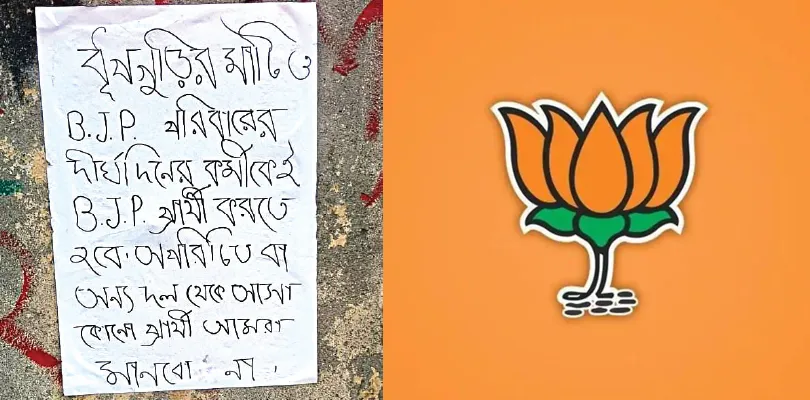 ধূপগুড়ির মাটিতে
B.J.P. পরিবারের
দীর্ঘদিনের কর্মীকেই
B.J.P. প্রার্থী করতে
হবে. অপরিচিত বা
অন্য দল থেকে আসা
কোনো প্রার্থী আমরা
মানবো না.